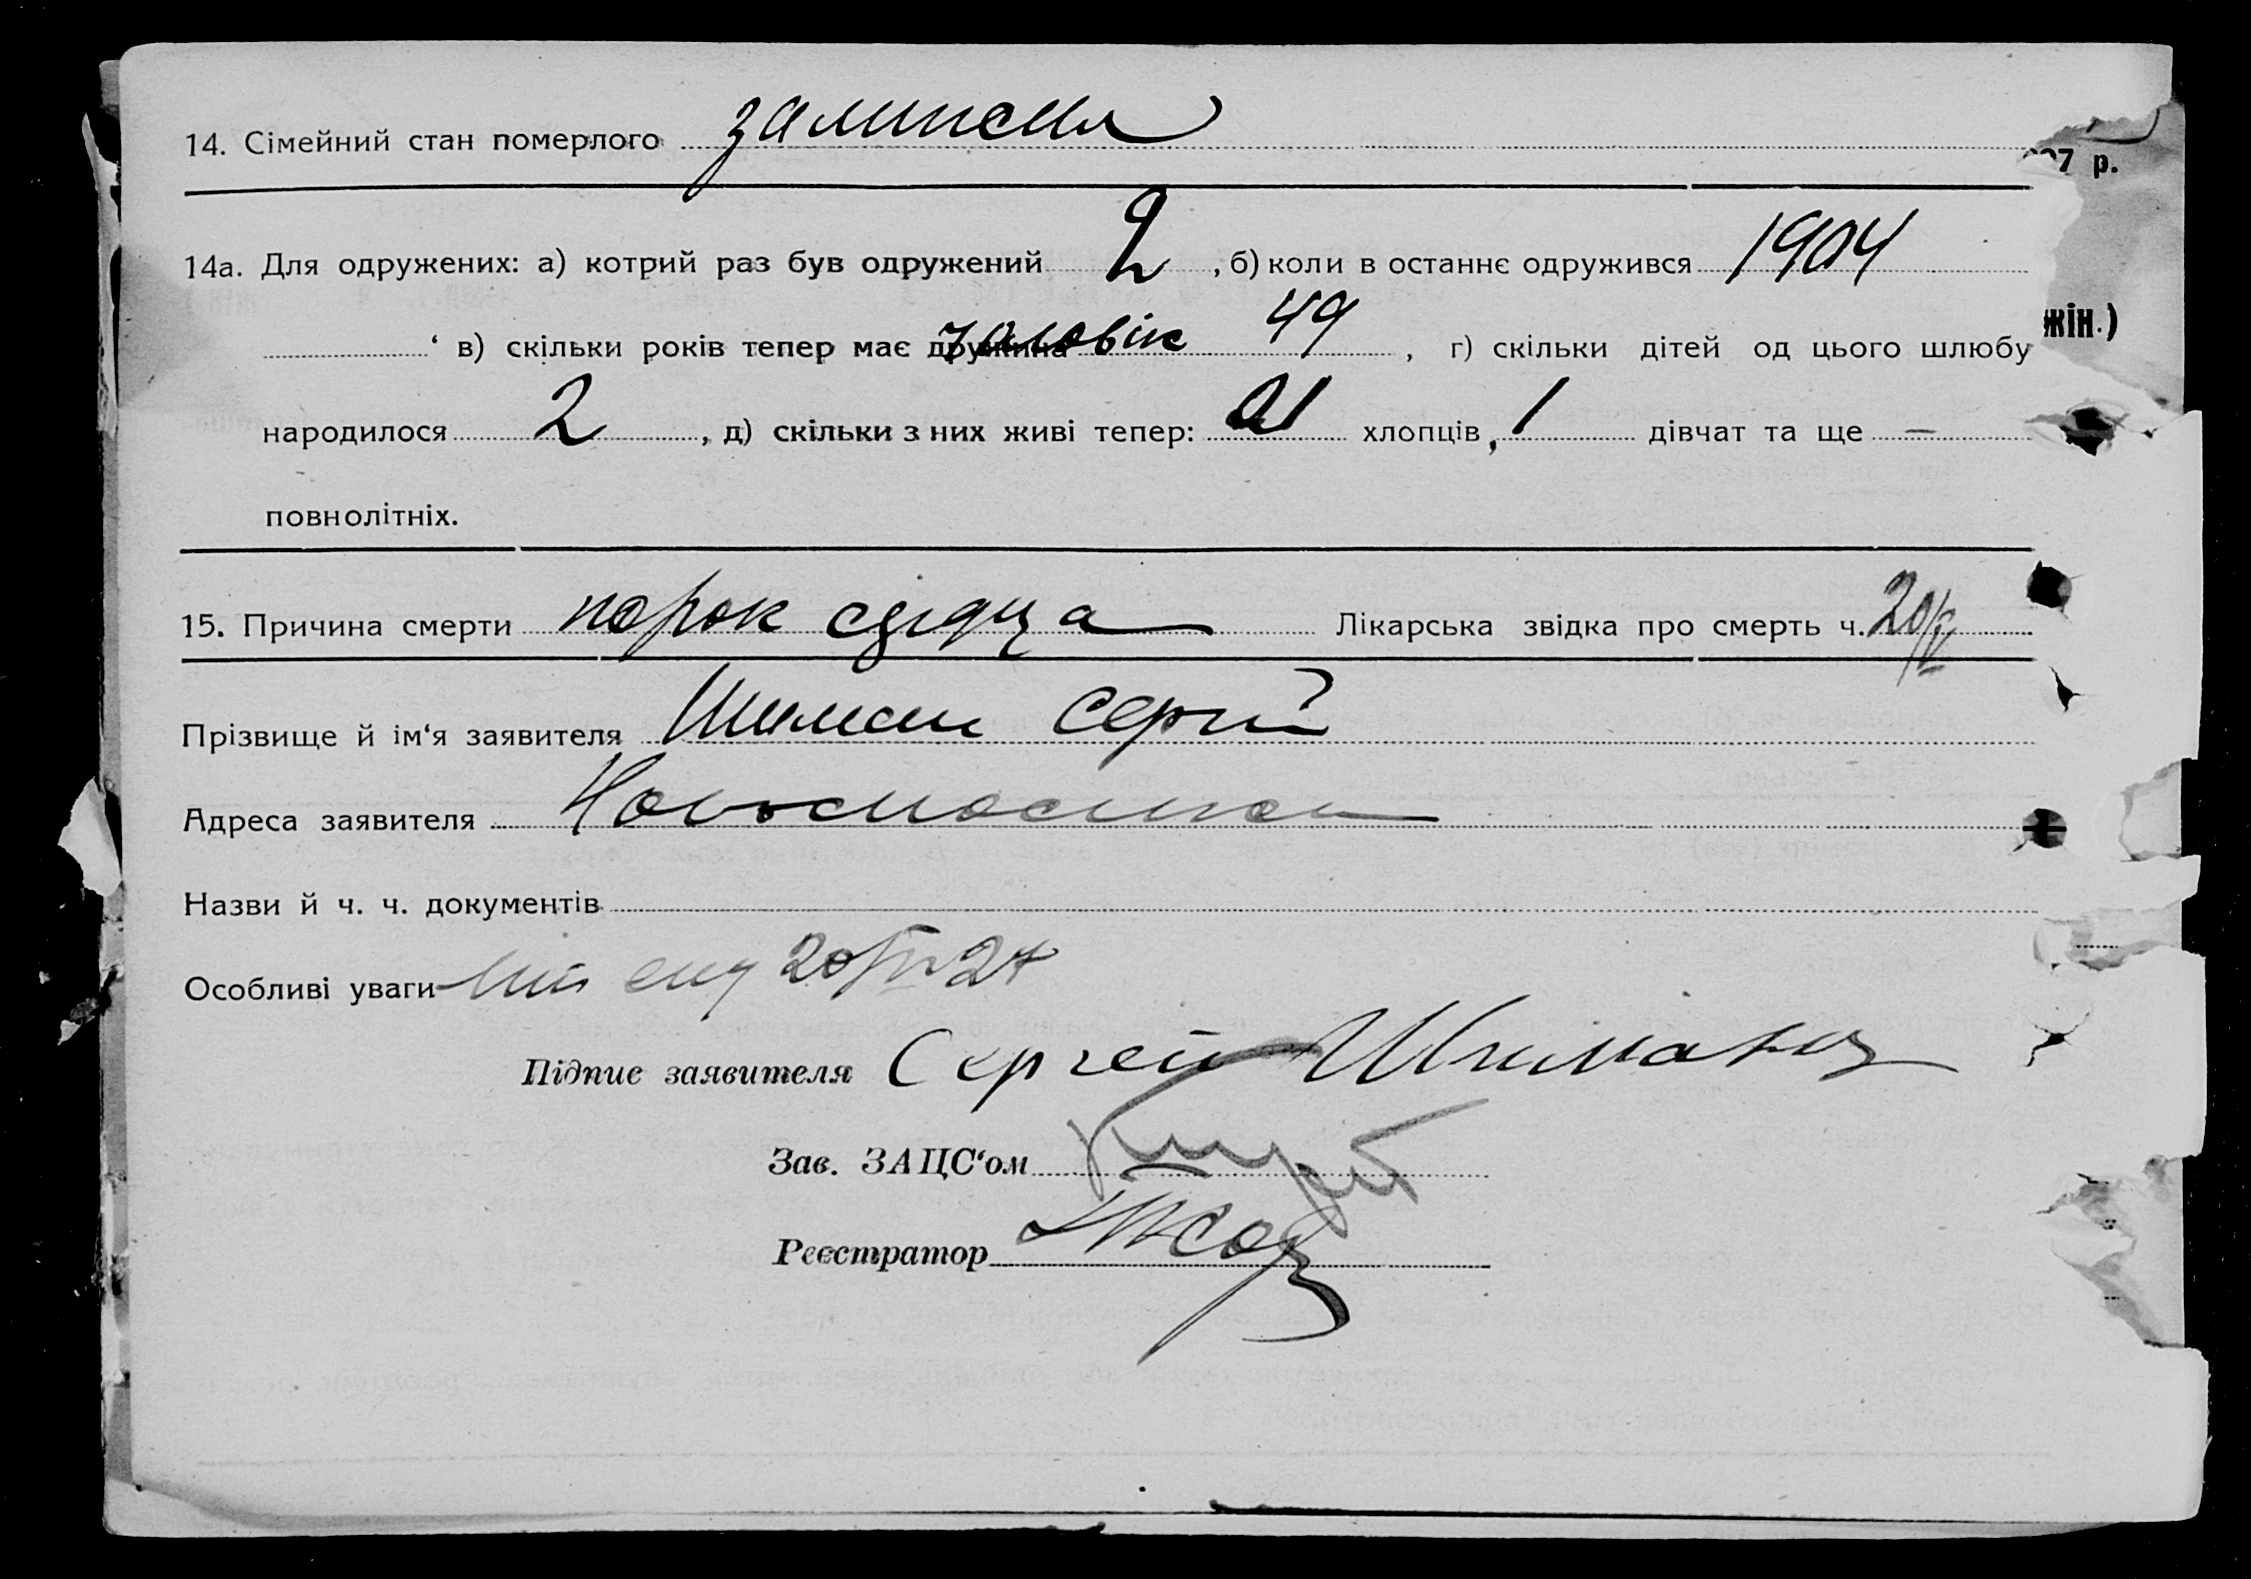 14. Сімейний стан померлого
7 р.
14а. Для одружених: а) котрий раз був одружений 2, б) коли в останнє одружився 1904
жін.)
в) скільки років тепер має дружина чоловік 49, г) скільки дітей од цього шлюбу
народилося 2, д) скільки з них живі тепер: 1 хлопців, 1 дівчат та ще —
повнолітніх.
15. Причина смерти порок сердца Лікарська звідка про смерть ч. 20/V
Прізвище й ім‘я заявителя Шиман Сергій
Адреса заявителя
Назви й ч. ч. документів
Особливі уваги
Підпис заявителя Сергей Шиман
Зав. ЗАЦС‘ом
Реєстратор